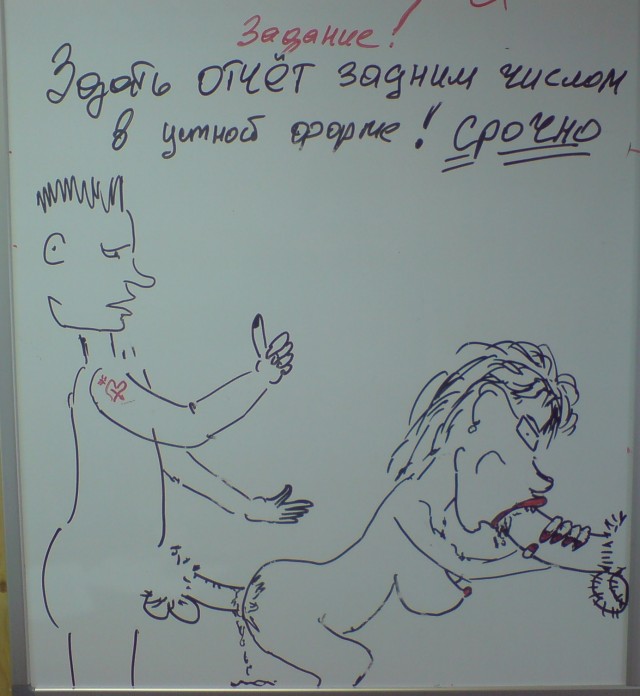 Задание!
Здать отчёт задним числом
в устной форме! срочно